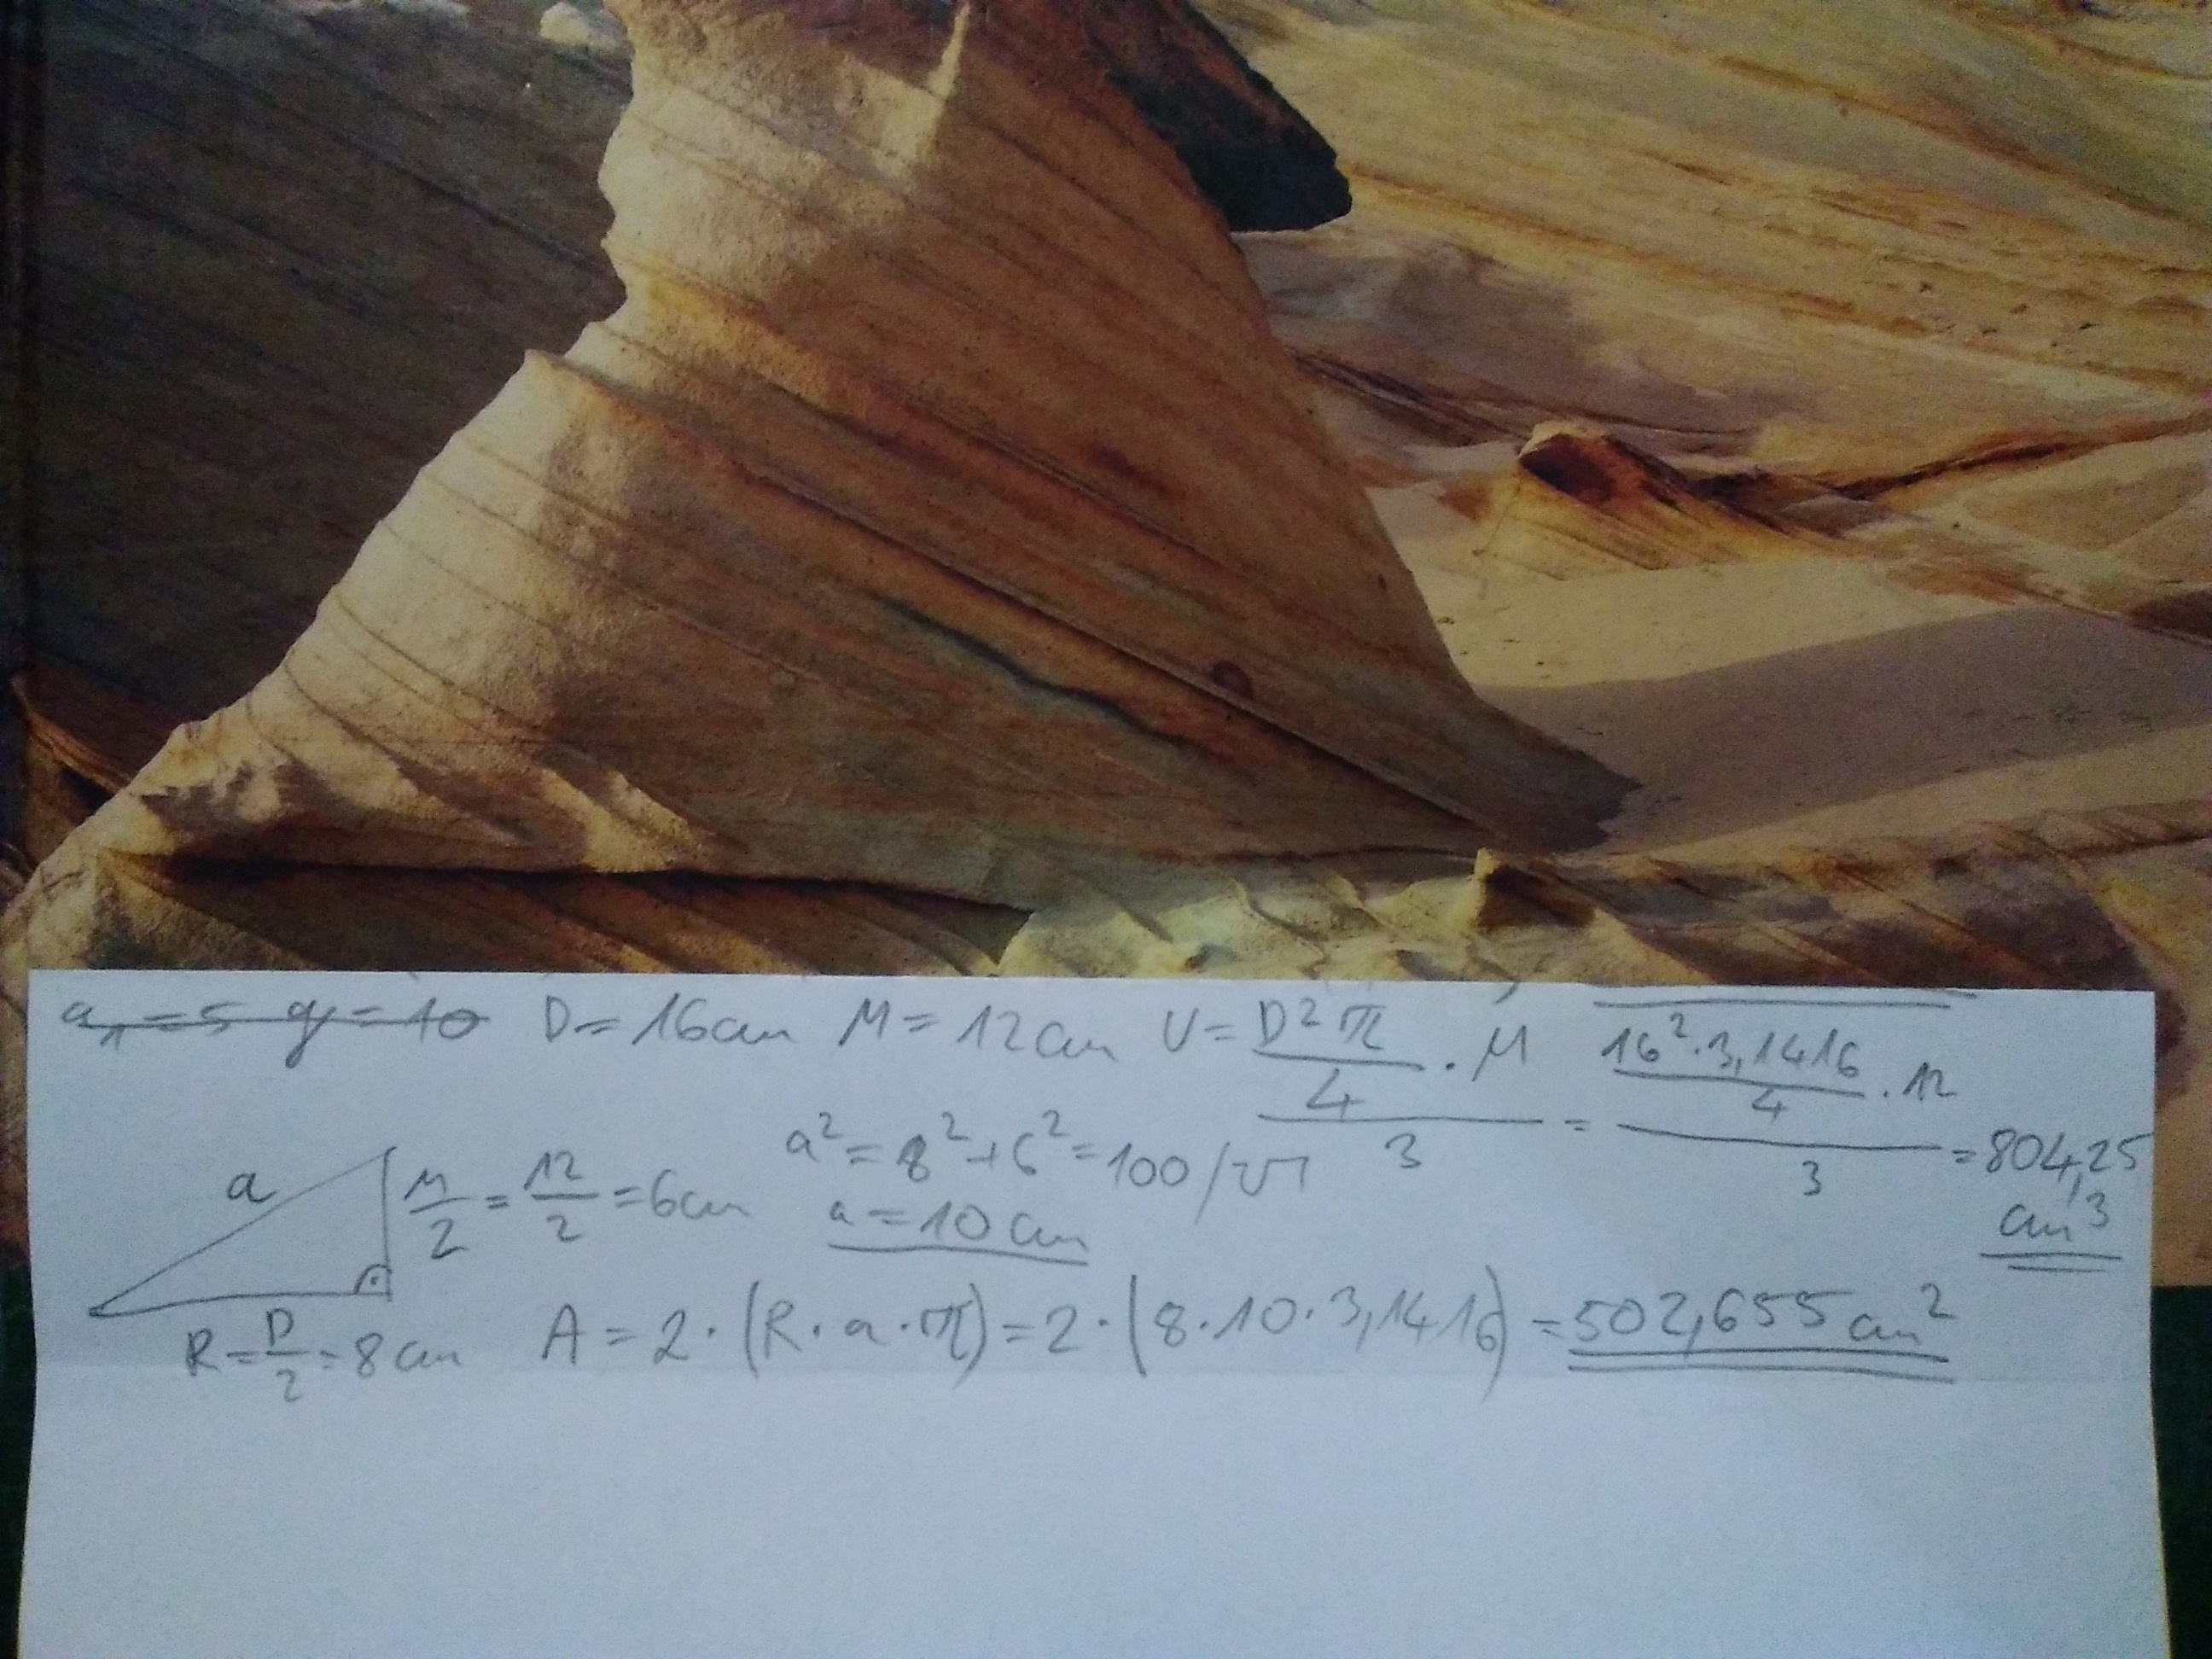 a₁=5 q=10 D=16cm M=12cm V= D²π/4 · M / 3 = 16²·3,1416/4 · 12 / 3 = 804,25 cm³
a M/2 = 12/2 = 6cm a² = 8²+6² = 100 /√
a = 10 cm
R = D/2 = 8 cm A = 2·(R·a·π) = 2·(8·10·3,1416) = 502,655 cm²